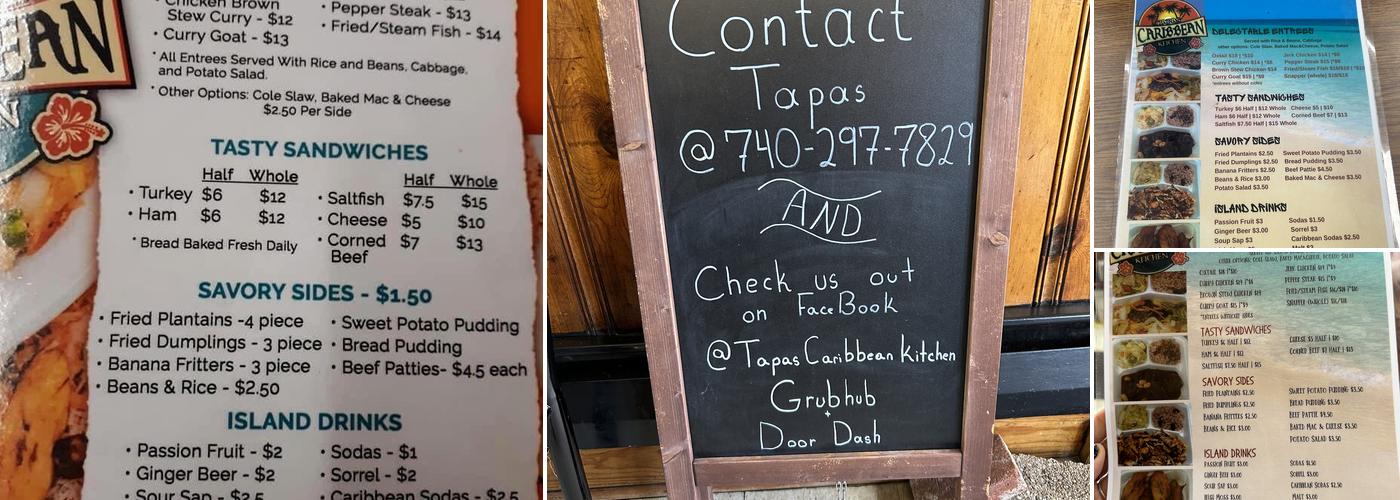 EAN
Chicken Brown
Stew Curry - $12
• Curry Goat - $13
• Pepper Steak - $13
• Fried/Steam Fish - $14
* All Entrees Served With Rice and Beans, Cabbage,
and Potato Salad.
* Other Options: Cole Slaw, Baked Mac & Cheese
$2.50 Per Side
TASTY SANDWICHES
Half Whole
• Turkey $6 $12
• Ham $6 $12
* Bread Baked Fresh Daily
Half Whole
• Saltfish $7.5 $15
• Cheese $5 $10
• Corned $7 $13
Beef
SAVORY SIDES - $1.50
• Fried Plantains -4 piece
• Fried Dumplings - 3 piece
• Banana Fritters - 3 piece
• Beans & Rice - $2.50
• Sweet Potato Pudding
• Bread Pudding
• Beef Patties- $4.5 each
ISLAND DRINKS
• Passion Fruit - $2
• Ginger Beer - $2
• Sour Sap - $2.5
• Sodas - $1
• Sorrel - $2
• Caribbean Sodas - $2.5
Contact
Tapas
@740-297-7829
AND
Check us out
on FaceBook
@Tapas Caribbean Kitchen
Grubhub
+
Door Dash
CARIBBEAN
KITCHEN
DELECTABLE ENTREES
Served with Rice & Beans, Cabbage
other options: Cole Slaw, Baked Mac&Cheese, Potato Salad
Oxtail $18 | *$10
Curry Chicken $14 | *$8
Brown Stew Chicken $14
Curry Goat $15 | *$9
*entrees without sides
Jerk Chicken $14 | *$8
Pepper Steak $15 | *$9
Fried/Steam Fish $16/$18 | *$10
Snapper (whole) $16/$18
TASTY SANDWICHES
Turkey $6 Half | $12 Whole
Ham $6 Half | $12 Whole
Saltfish $7.50 Half | $15 Whole
Cheese $5 | $10
Corned Beef $7 | $13
SAVORY SIDES
Fried Plantains $2.50
Fried Dumplings $2.50
Banana Fritters $2.50
Beans & Rice $3.00
Potato Salad $3.50
Sweet Potato Pudding $3.50
Bread Pudding $3.50
Beef Pattie $4.50
Baked Mac & Cheese $3.50
ISLAND DRINKS
Passion Fruit $3
Ginger Beer $3.00
Soup Sap $3
Sodas $1.50
Sorrel $3
Caribbean Sodas $2.50
Malt $3
KITCHEN
OTHER OPTIONS: COLE SLAW, BAKED MAC&CHEESE, POTATO SALAD
CURRY CHICKEN
BROWN STEW CHICKEN
CURRY GOAT
*ENTREES WITHOUT SIDES
JERK CHICKEN
PEPPER STEAK
FRIED/STEAM FISH
SNAPPER (WHOLE)
TASTY SANDWICHES
TURKEY $6 HALF | $12
HAM $6 HALF | $12
SALTFISH $7.50 HALF | $15
CHEESE $5 HALF | $10
CORNED BEEF $7 HALF | $13
SAVORY SIDES
FRIED PLANTAINS $2.50
FRIED DUMPLINGS $2.50
BANANA FRITTERS $2.50
BEANS & RICE $3.00
SWEET POTATO PUDDING $3.50
BREAD PUDDING $3.50
BEEF PATTIE $4.50
BAKED MAC & CHEESE $3.50
POTATO SALAD $3.50
ISLAND DRINKS
PASSION FRUIT $3.00
GINGER BEER $3.00
SOUR SAP $3.00
IRISH MOSS $3.00
SODAS $1.50
SORREL $3.00
CARIBBEAN SODAS $2.50
MALT $3.00